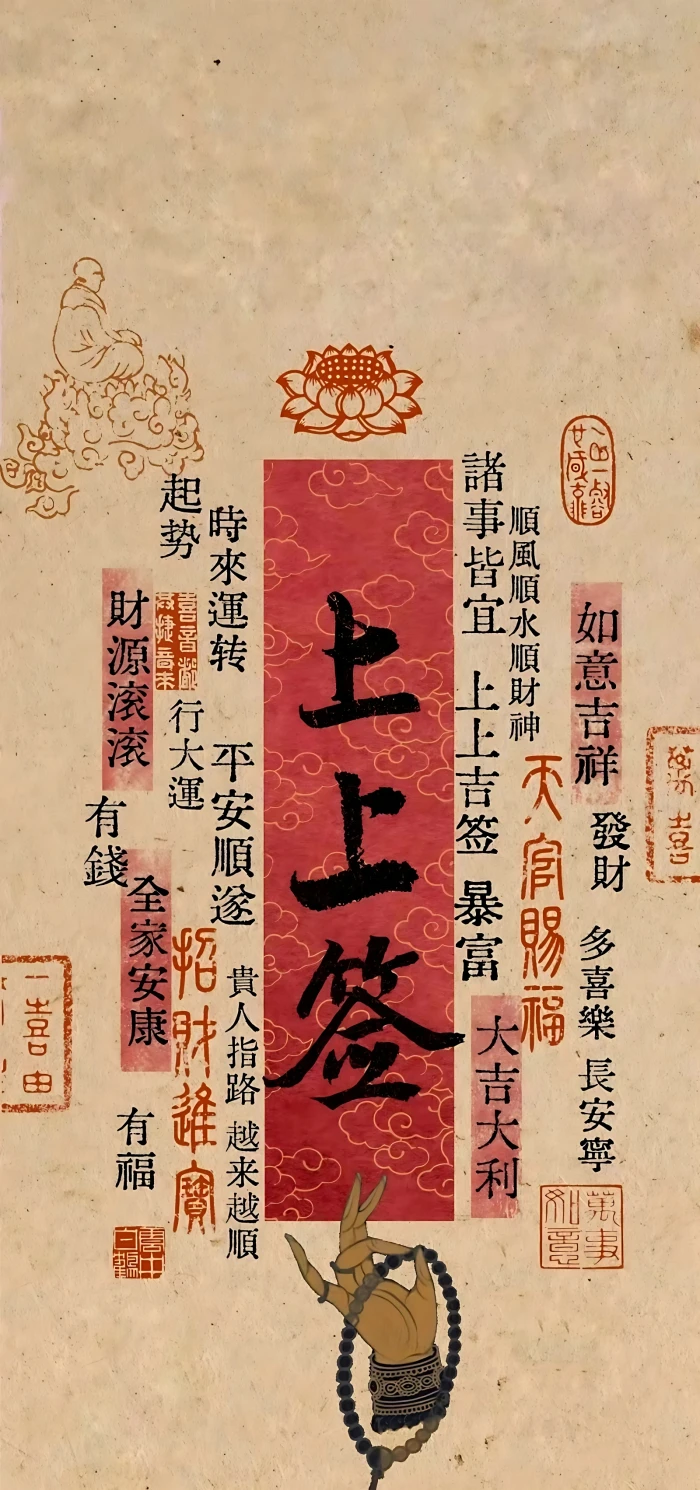 如意吉祥
發財
多喜樂 長安寧
萬事
如意
順風順水順財神
天官賜福
諸事皆宜 上上吉签 暴富
大吉大利
上上签
時來運转 平安順遂
貴人指路 越来越順
起势
行大運
招財進寶
財源滚滚
全家安康
有錢
有福
一喜由